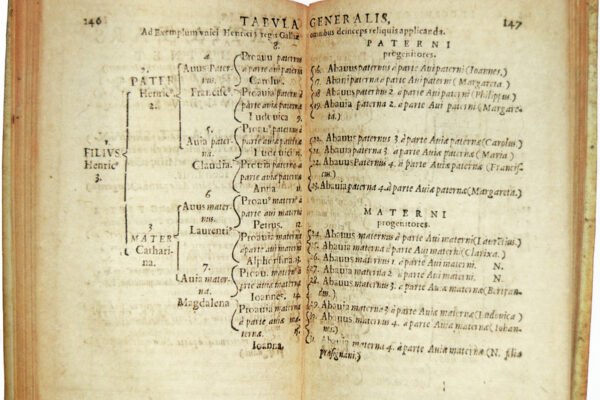 146 TABVLA
Ad Exemplum vnici Henrici 3. regis Galliæ
1.
FILIVS
Henricº
3.
2.
PATER
Henricº
2.
3
MATER
Cathari-
na.
4.
Auus Pater
Francisc⁹.
5.
Auia pater-
na.
Claudia.
6.
Auus mater
nus.
Laurenti⁹
7.
Auia mater
na.
Magdalena
8.
Proauu paternu
à parte aui paterni
Carolus.
Proauia paterna
à parte aui paterni
Ludouica 9.
Proau⁹ patern⁹
à parte auiæ paternæ
Ludouicus
Proauia paterna
à parte auiæ paternæ
Anna
Proau⁹ maternus
à parte aui materni
Petrus. 12.
Proauia materna
à parte aui materni
Alphonsina 13.
Proau. maternus
à parte auiæ mater
næ.
Ioannes. 14.
Proauia materna
à parte auiæ ma-
ternæ.
Ioanna.
GENERALIS, 147
omnibus deinceps reliquis applicanda.
PATERNI
progenitores.
16. Abauus paternus à parte Aui paterni (Ioannes.)
17. Abauia paterna à parte Aui paterni (Margareta.)
18. Abauus paternus 2. à parte Aui paterni (Philippus)
19. Abauia paterna 2. à parte Aui paterni (Margare-
ta.)
Abauus paternus 3 à parte Auiæ paternæ (Carolus)
21. Abauia paterna 3. à parte Auiæ paternæ (Maria)
22. Abauus Paternus 4. à parte Auiæ paternæ (Franci-
scus.)
23. Abauia paterna 4. à parte Auiæ paternæ (Margareta.)
MATERNI
progenitores.
24. Abauus maternus à parte Aui materni (Laurẽtius)
25. Abauia materna à parte Aui materni (Clarixa.)
26. Abauus maternus 2 à parte Aui materni N.
Abauia materna 2. à parte Aui materni N.
28. Abauus maternus 3. à parte Auiæ maternæ (Bertran-
dus.)
Abauia materna 3 à parte Auiæ maternæ (Ludouica)
Abauus maternus 4. à parte Auiæ maternæ (Iohan-
nes.)
Abauia materna 4. à parte Auiæ maternæ (N. filia
præfignani.)